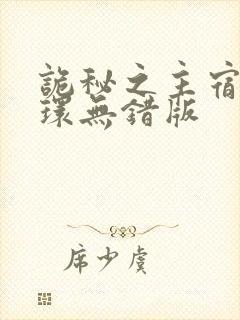 詭秘之主宿
環無錯版
席少虞